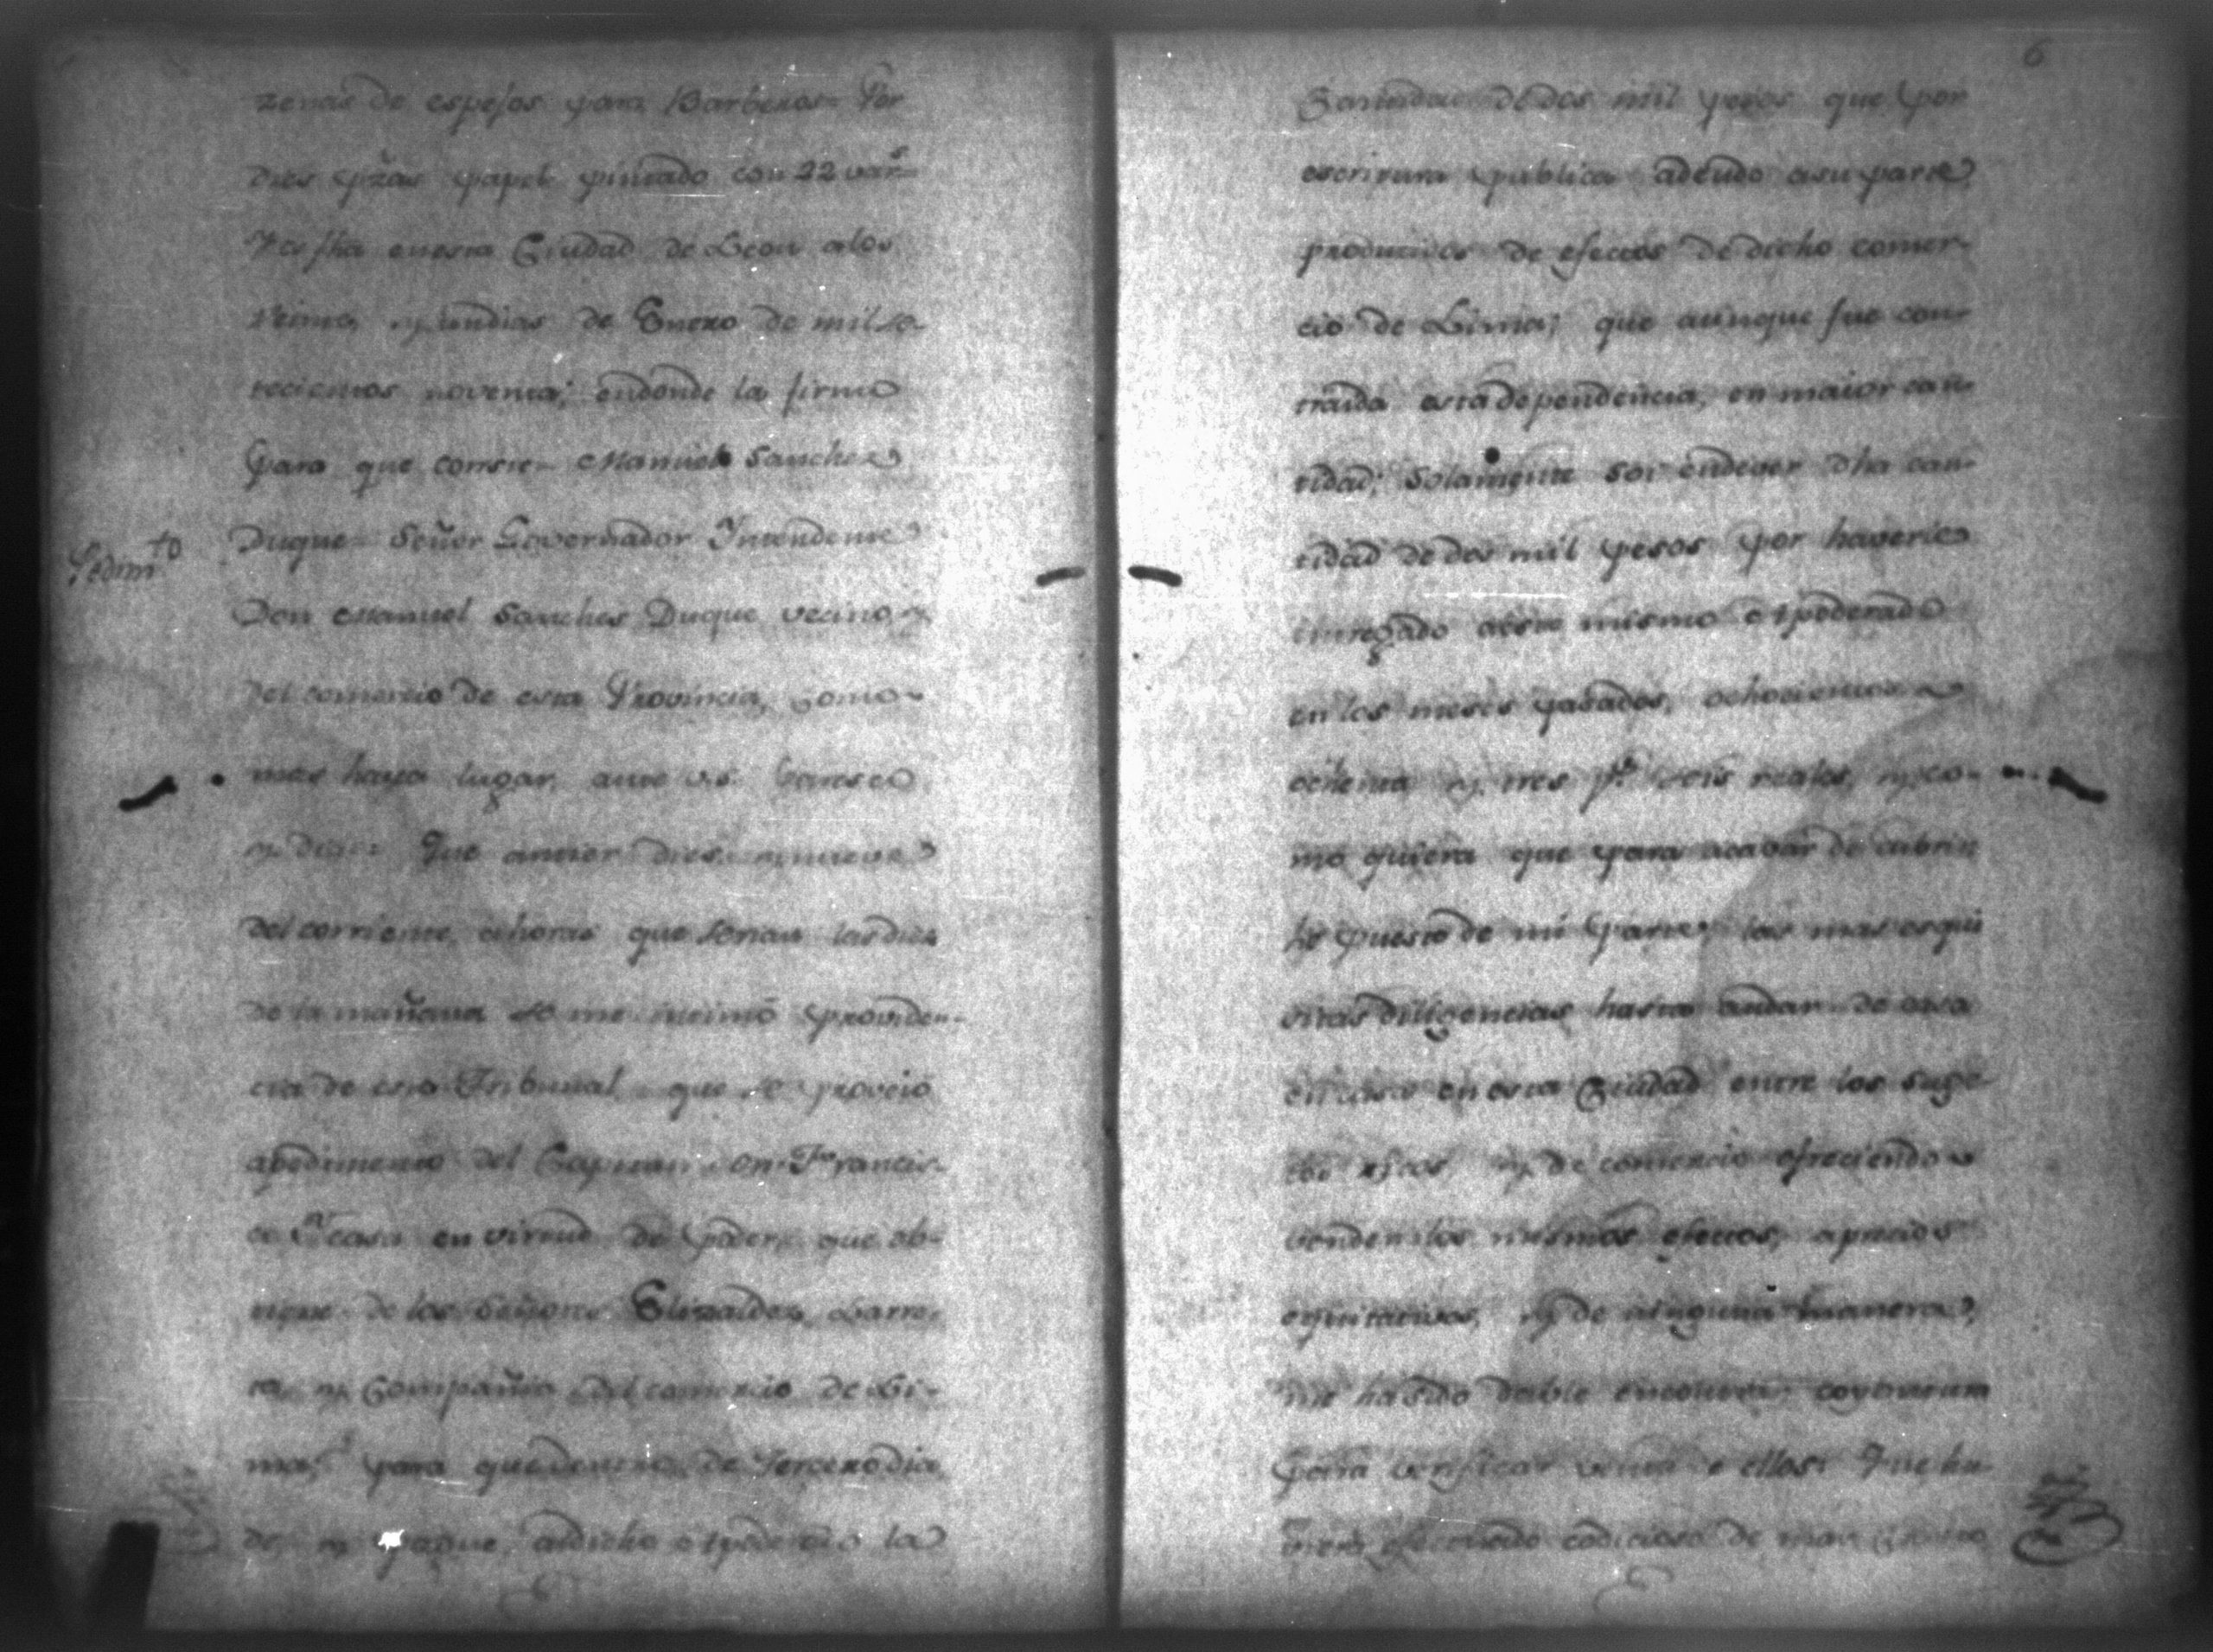 zenas de espejos para Barberos= Por
dies pzãs papel pintado con 22 var.s
Es fha enesta Ciudad de Leon alos
Veinte y un dias de Enero de mil se-
tecientos noventa; endonde la firmo
para que conste= Manuel Sanches
Pedim.to
Duque= Señor Governador Intendente
Don Manuel Sanches Duque vecino y
del comercio de esta Provincia, como
mas haya lugar, ante v.s. paresco
y digo: Que antier dies y nueve
del corriente, ahoras que serian las dies
de la mañana se me intimó providen-
cia de este Tribunal que se proveió
apedimento del Capitan Don Francis-
co en virtud de poder, que ob-
tiene de los Señores Elizalde, Larre-
ta, y Compañia del comercio de Li-
ma, para que dentro de Tercero dia,
de y pague, adicho Apoderado la
6
Cantidad de dos mil pesos que por
escritura publica adeudo asu parte
productos de efectos de dicho comer-
cio de Lima; que aunque fue con-
traida esta dependencia, en maior can-
tidad; solamente soi endever dha can-
tidad de dos mil pesos por haverle
entregado aeste mismo Apoderado
en los meses pasados, ochocientos
ochenta y tres p.s seis reales, y co-
mo quiera que para acavar de cubrir
he puesto de mi parte, las mas esqui
sitas diligencias hasta andar de casa
en casa en esta Ciudad entre los suge-
tos ricos, y de comercio ofreciendo
venderles los mismos efectos, aprecios
equitativos, y de ninguna manera,
me ha sido dable encontrar coyuntura
para verificar venta e ellos: Que hu-
viera efectuado codicioso de mas